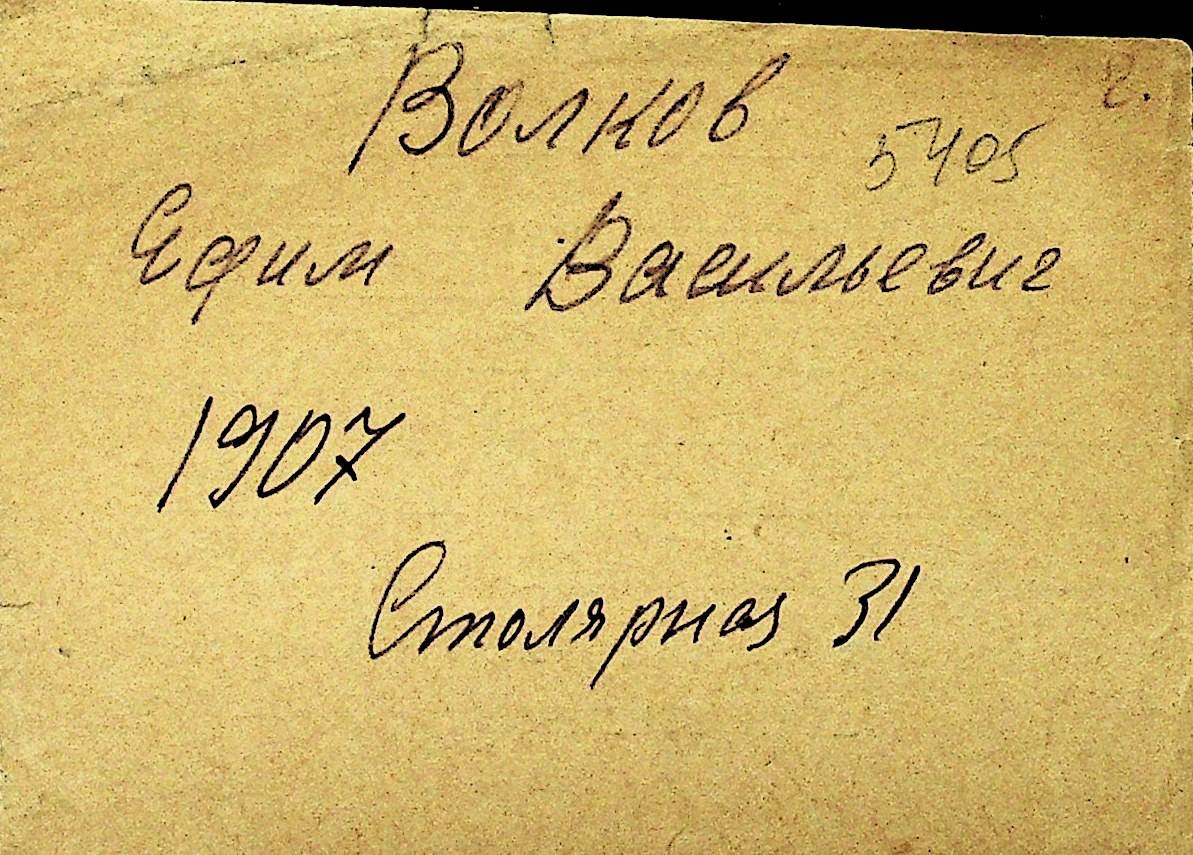 Волков
5405
Ефим Васильевич
1907
Столярная 31